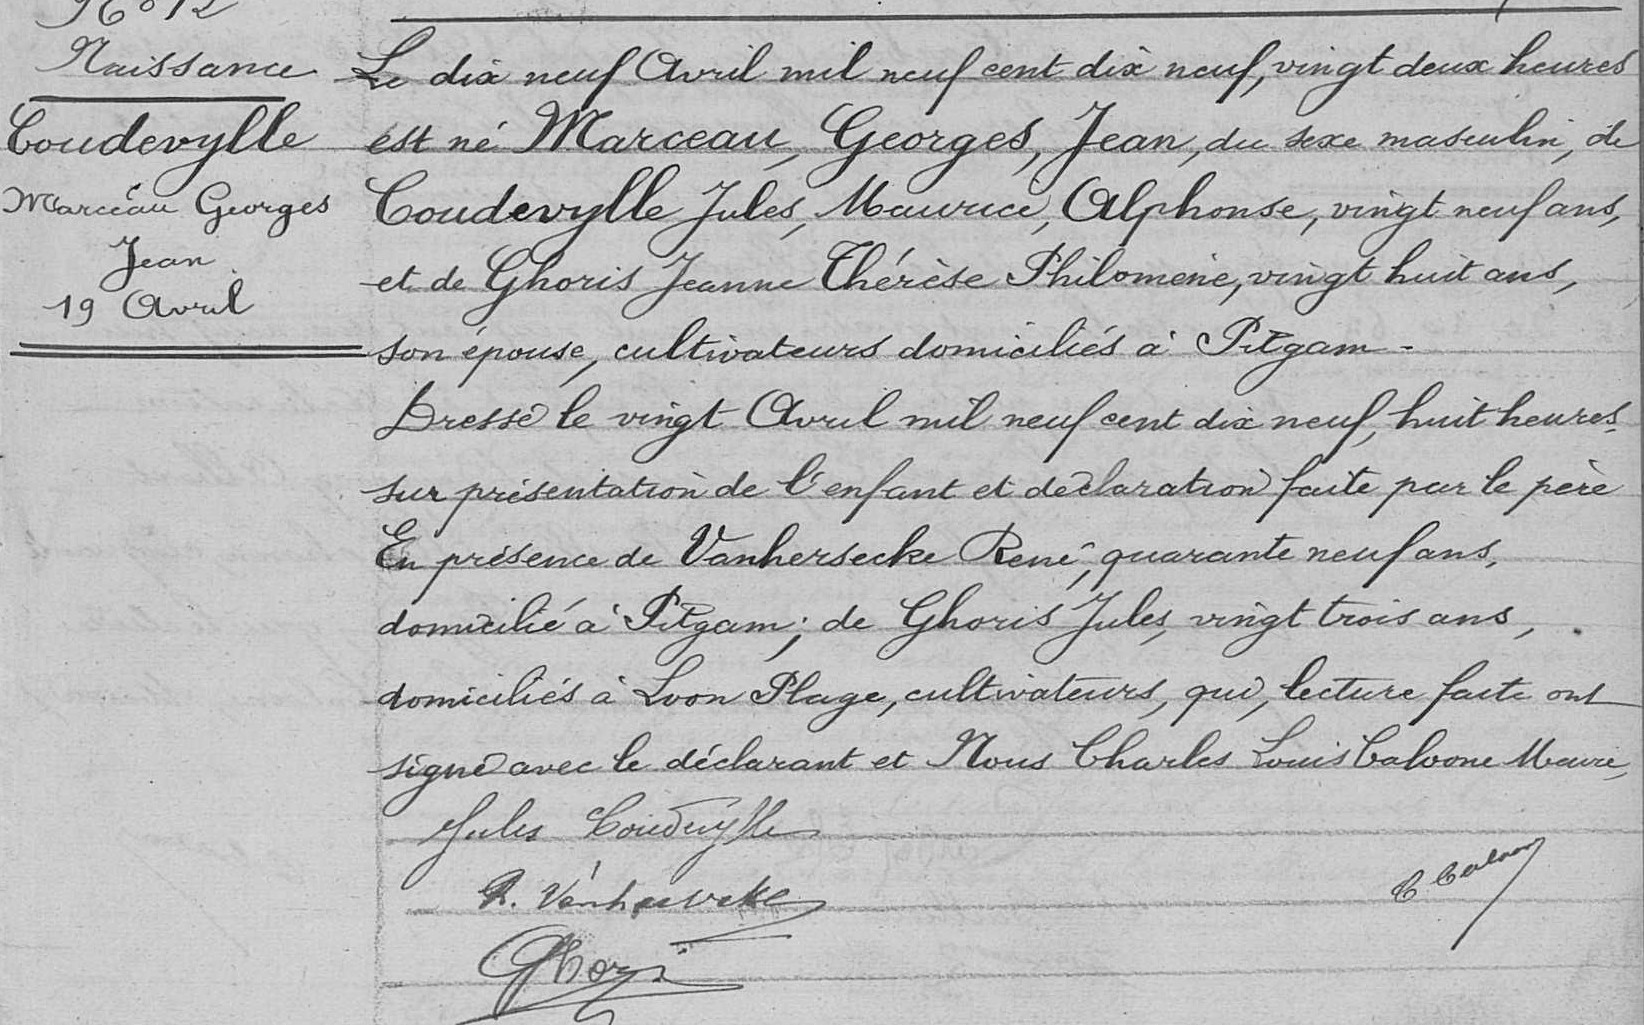 N° 12
Naissance
Coudevylle
Marceau Georges
Jean
19 Avril
Le dix neuf Avril mil neuf cent dix neuf, vingt deux heures
est né Marceau, Georges, Jean, du sexe masculin, de
Coudevylle Jules, Maurice, Alphonse, vingt neuf ans,
et de Ghoris Jeanne Thérèse Philomène, vingt huit ans,
son épouse, cultivateurs domiciliés à Pitgam -
Dressé le vingt Avril mil neuf cent dix neuf, huit heures
sur présentation de l'enfant et déclaration faite par le père
En présence de Vanhersecke René, quarante neuf ans,
domicilié à Pitgam; de Ghoris Jules, vingt trois ans,
domiciliés à Loon Plage, cultivateurs, qui, lecture faite ont
signé avec le déclarant et Nous Charles Louis Caloone Maire,
Jules Coudevylle
R. Vanhersecke
Ghoris
C Caloone